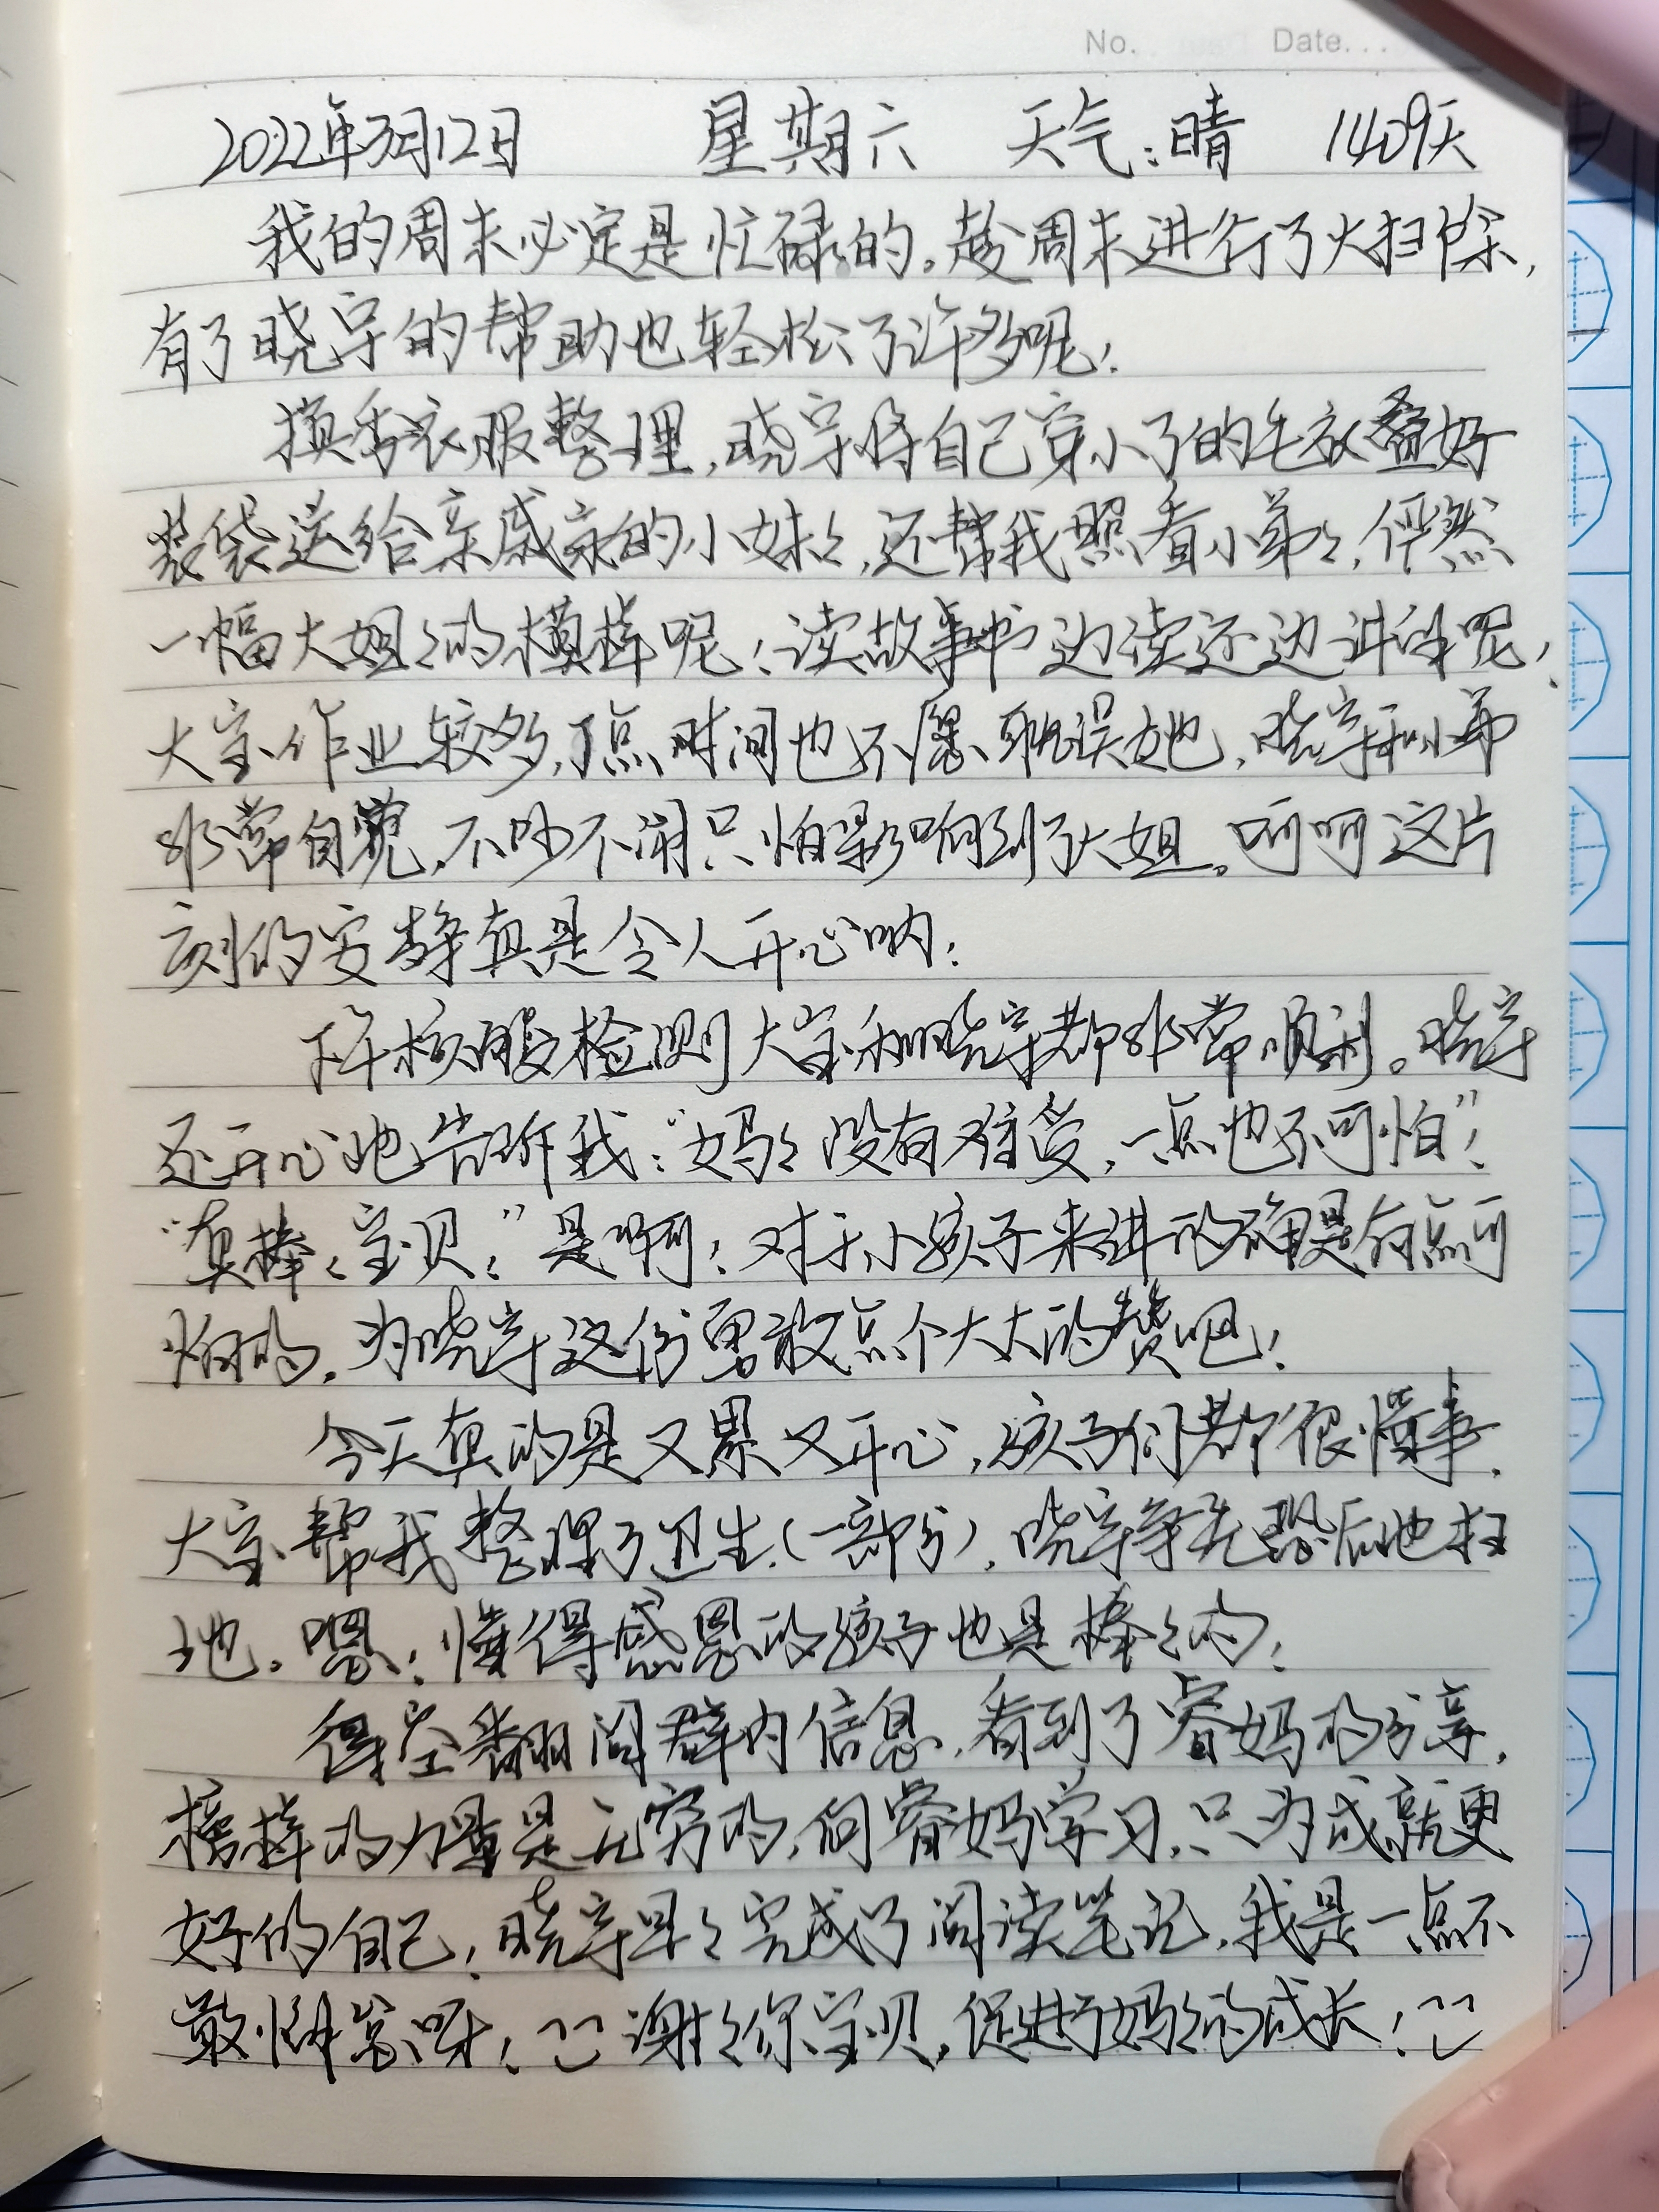 No. Date...
2022年3月12日 星期六 天气:晴 1409天
我的周末必定是忙碌的。趁周末进行了大扫除,
有了晓宇的帮助也轻松了许多呢!
换季衣服整理,晓宇将自己穿小了的毛衣叠好
装袋送给亲戚家的小妹々,还帮我照看小弟々,俨然
一幅大姐々的模样呢!读故事书边读还边讲解呢!
大宝作业较多,一点时间也不愿耽误她,晓宇和小弟
非常自觉,不吵不闹只怕影响到了大姐。呵呵这片
刻的安静真是令人开心呐!
下午核酸检测大宝和晓宇都非常顺利。晓宇
还开心地告诉我:“妈々没有难受,一点也不可怕”!
“真棒!宝贝!”是啊!对于小孩子来讲的确是有点可
怕的,为晓宇这份勇敢点个大大的赞吧!
今天真的是又累又开心,孩子们都很懂事,
大宝帮我整理了卫生(一部分),晓宇争先恐后地扫
地。嗯!懂得感恩的孩子也是棒々的!
得空翻阅群内信息,看到了睿妈的分享,
榜样的力量是无穷的,向睿妈学习,只为成就更
好的自己!晓宇早々完成了阅读笔记,我是一点不
敢懈怠呀!谢々你宝贝,促进了妈々的成长!